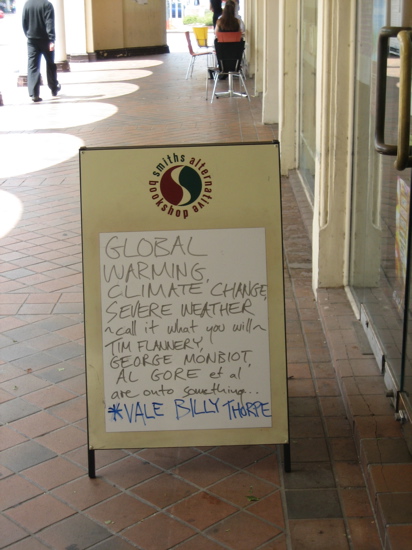 smiths alternative bookshop
GLOBAL
WARMING,
CLIMATE CHANGE,
SEVERE WEATHER
~call it what you will~
TIM FLANNERY,
GEORGE MONBIOT,
AL GORE et al
are onto something...
*VALE BILLY THORPE